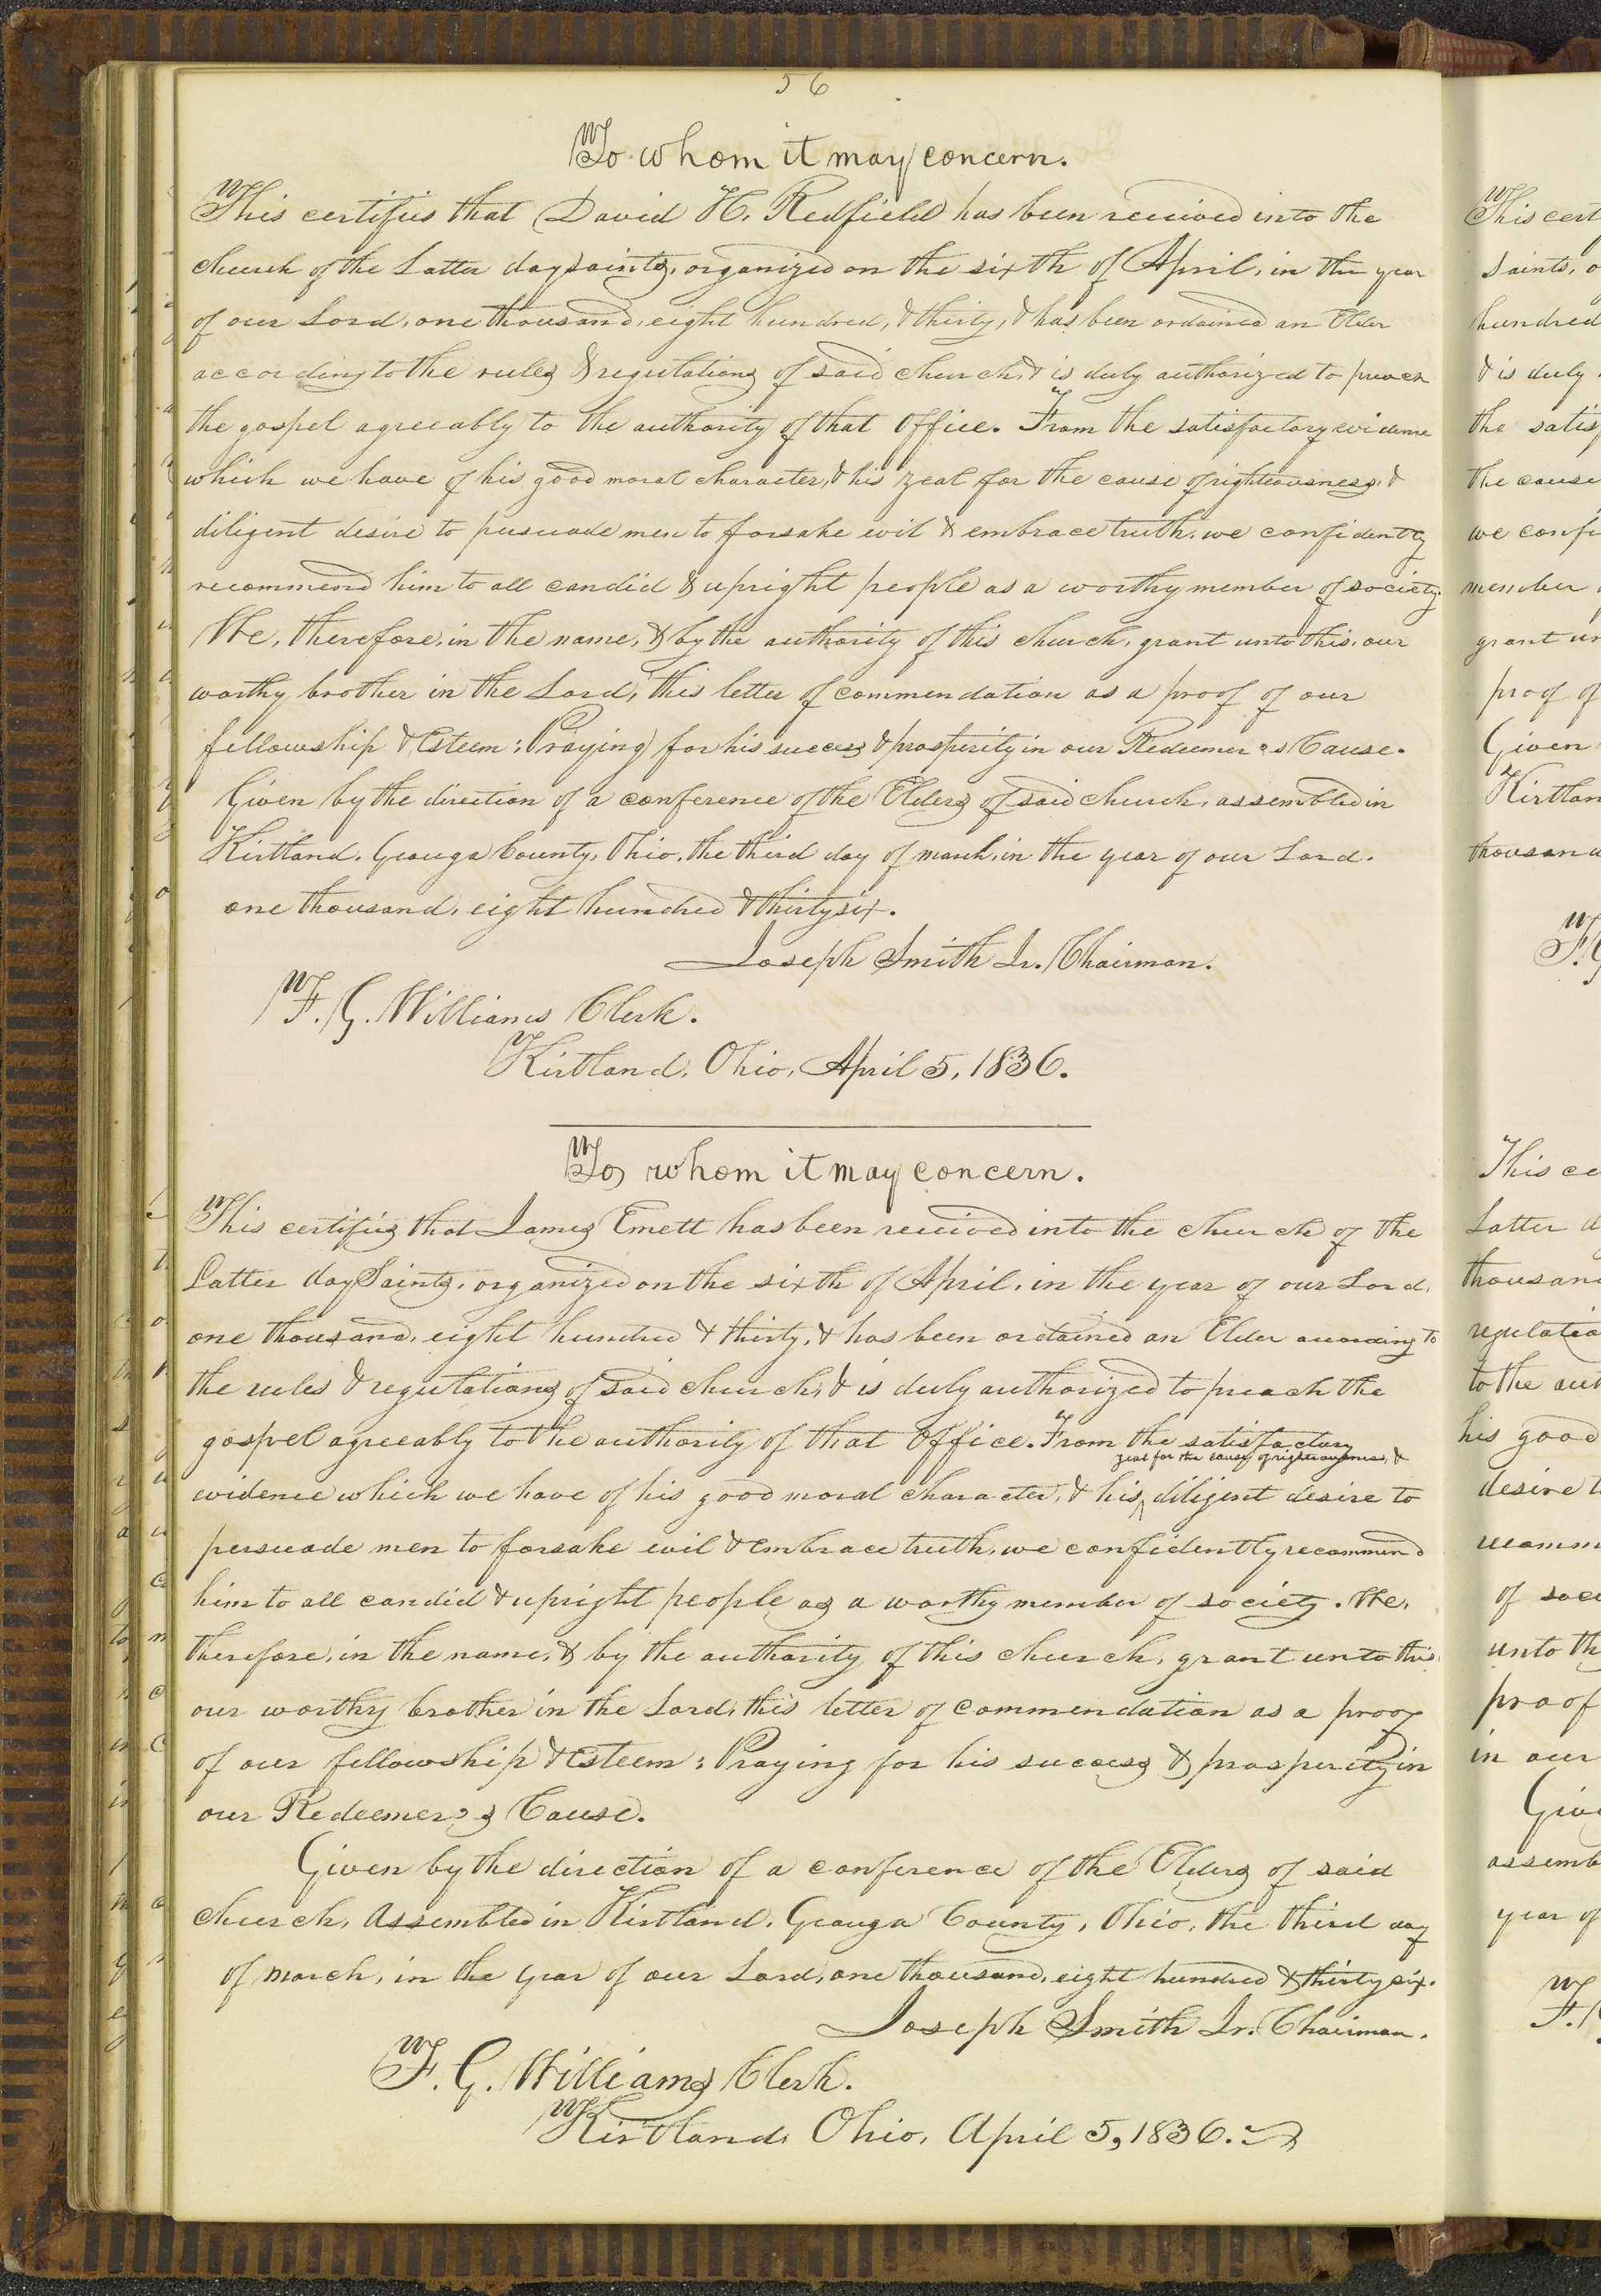 56
To whom it may concern.
This certifies that David H. Redfield has been received into the
church of the Latter day saints, organized on the sixth of April, in the year
of our Lord, one thousand, eight hundred, & thirty, & has been ordained an Elder
according to the rules & regulations of said church, & is duly authorized to preach
the gospel agreeably to the authority of that Office. From the satisfactory evidence
which we have of his good moral character, & his zeal for the cause of righteousness, &
diligent desire to persuade men to forsake evil & embrace truth, we confidently
recommend him to all candid & upright people as a worthy member of society.
We, therefore, in the name, & by the authority of this church, grant unto this, our
worthy brother in the Lord, this letter of commendation as a proof of our
fellowship & Esteem: Praying for his success & prosperity in our Redeemer's Cause.
Given by the direction of a conference of the Elders of said church, assembled in
Kirtland, Geauga County, Ohio, the third day of march, in the year of our Lord.
one thousand, eight hundred & thirty six.
Joseph Smith Jr. Chairman.
F. G. Williams Clerk.
Kirtland, Ohio, April 5, 1836.
To whom it may concern.
This certifies that James Emett has been received into the church of the
Latter day Saints, organized on the sixth of April, in the year of our Lord,
one thousand, eight hundred & thirty, & has been ordained an Elder according to
the rules & regulations of said church, & is duly authorized to preach the
gospel agreeably to the authority of that Office. From the satisfactory
zeal for the cause of righteousness, &
evidence which we have of his good moral character, & his ^ diligent desire to
persuade men to forsake evil & embrace truth, we confidently recommend
him to all candid & upright people as a worthy member of society. We,
therefore, in the name, & by the authority of this church, grant unto this
our worthy brother in the Lord, this letter of commendation as a proof
of our fellowship & Esteem: Praying for his success & prosperity in
our Redeemer's Cause.
Given by the direction of a conference of the Elders of said
church, Assembled in Kirtland, Geauga County, Ohio, the third day
of march, in the year of our Lord, one thousand, eight hundred & thirty six.
Joseph Smith Jr. Chairman.
F. G. Williams Clerk.
Kirtland, Ohio, April 5, 1836.
This cert
Saints, o
hundred
& is duly
the satis
the cause
we confi
member
grant un
proof of
Given
Kirtlan
thousand
This ce
Latter d
thousand
regulatio
to the aut
his good
desire t
recomm
of soci
unto th
proof
in our
Give
assemb
year of